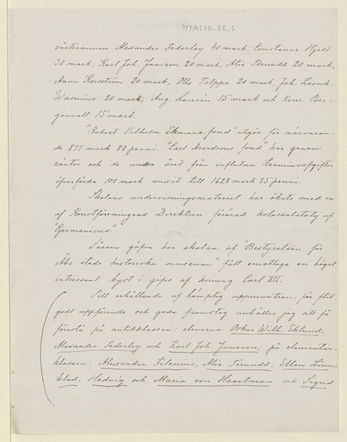 västerinnan Alexandra Federley 40 mark, Constance Hjelt
30 mark, Karl Joh. Jansson 20 mark, Alie Törnudd 20 mark,
Anna Korsström 20 mark, Otto Tolppo 20 mark, Joh.
Wasenius 20 mark, Aug. Laurén 15 mark och Kons. Ber-
genvall 15 mark.
"Robert Vilhelm Ekmans fond" utgör för närvaran-
de 877 mark 88 penni. "Carl Arvidsons fond" har genom
räntor och de under året från influtna terminsafgifter
öfverförde 100 mark vuxit till 1628 mark 35 penni.
Skolans undervisningsmaterial har ökats med en
af Konstföreningens Direktion förärad kolossalstaty af
"Germanicus".
Såsom gåfva har skolan af "Bestyrelsen för
Åbo stads historiska museum" fått emottaga en högst
intressant byst i gips af konung Carl XII.
Till erhållande af lämplig uppmuntran, för flit
godt uppförande och goda framsteg anhåller jag att få
föreslå på antikklassen: eleverna Oskar Wilh. Eklund,
Alexandra Federley och Karl Joh. Jansson; på elementar-
klassen: Alexandra Frosterus, Alie Törnudd, Ellen Lönn-
blad, Hedvig och Maria von Haartman och Sigrid